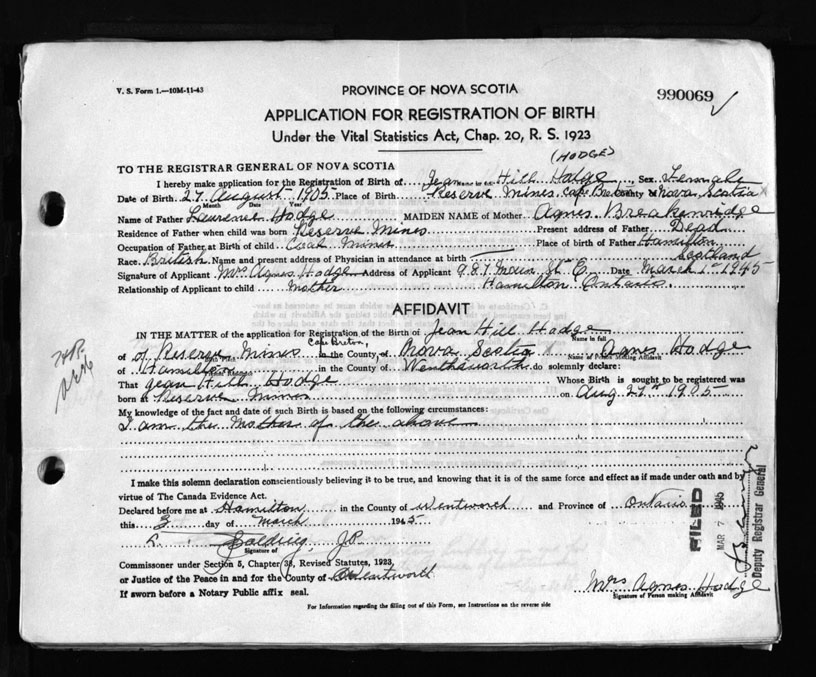 V. S. Form 1.—10M-11-43
PROVINCE OF NOVA SCOTIA
990069
APPLICATION FOR REGISTRATION OF BIRTH
Under the Vital Statistics Act, Chap. 20, R. S. 1923
(HODGE)
TO THE REGISTRAR GENERAL OF NOVA SCOTIA
I hereby make application for the Registration of Birth of Jean Hill Hodge Sex Female
Date of Birth 27 August 1905 Place of Birth Reserve Mines Cape Breton County Nova Scotia
Month Date Year
Name of Father Laurence Hodge MAIDEN NAME of Mother Agnes Breakenridge
Residence of Father when child was born Reserve Mines Present address of Father Dead
Occupation of Father at Birth of child Coal Miner Place of Birth of Father Hamilton
Scotland
Race British Name and present address of Physician in attendance at birth
Signature of Applicant Mrs Agnes Hodge Address of Applicant 987 Main St E. Date March 1st 1945
Relationship of Applicant to child Mother Hamilton Ontario
AFFIDAVIT
IN THE MATTER of the application for Registration of the Birth of Jean Hill Hodge
Name in full
Cape Breton,
of Reserve Mines in the County of Nova Scotia Agnes Hodge
Name of Person Making Affidavit
of Hamilton in the County of Wenthworth do solemnly declare:
That Jean Hill Hodge Whose Birth is sought to be registered was
born at Reserve Mines on Aug 27th 1905
My knowledge of the fact and date of such Birth is based on the following circumstances:
I am the Mother of the above
I make this solemn declaration conscientiously believing it to be true, and knowing that it is of the same force and effect as if made under oath and by
virtue of The Canada Evidence Act.
Declared before me at Hamilton in the County of Wentworth and Province of Ontario
this 3 day of March 1945
Golding, J.P.
Signature of
Commissioner under Section 5, Chapter 38, Revised Statutes, 1923
or Justice of the Peace in and for the County of Wentworth
If sworn before a Notary Public affix seal.
Mrs Agnes Hodge
Signature of Person making Affidavit
For Information regarding the filling out of this Form, see Instructions on the reverse side
FILED
MAR 7 1945
Deputy Registrar General